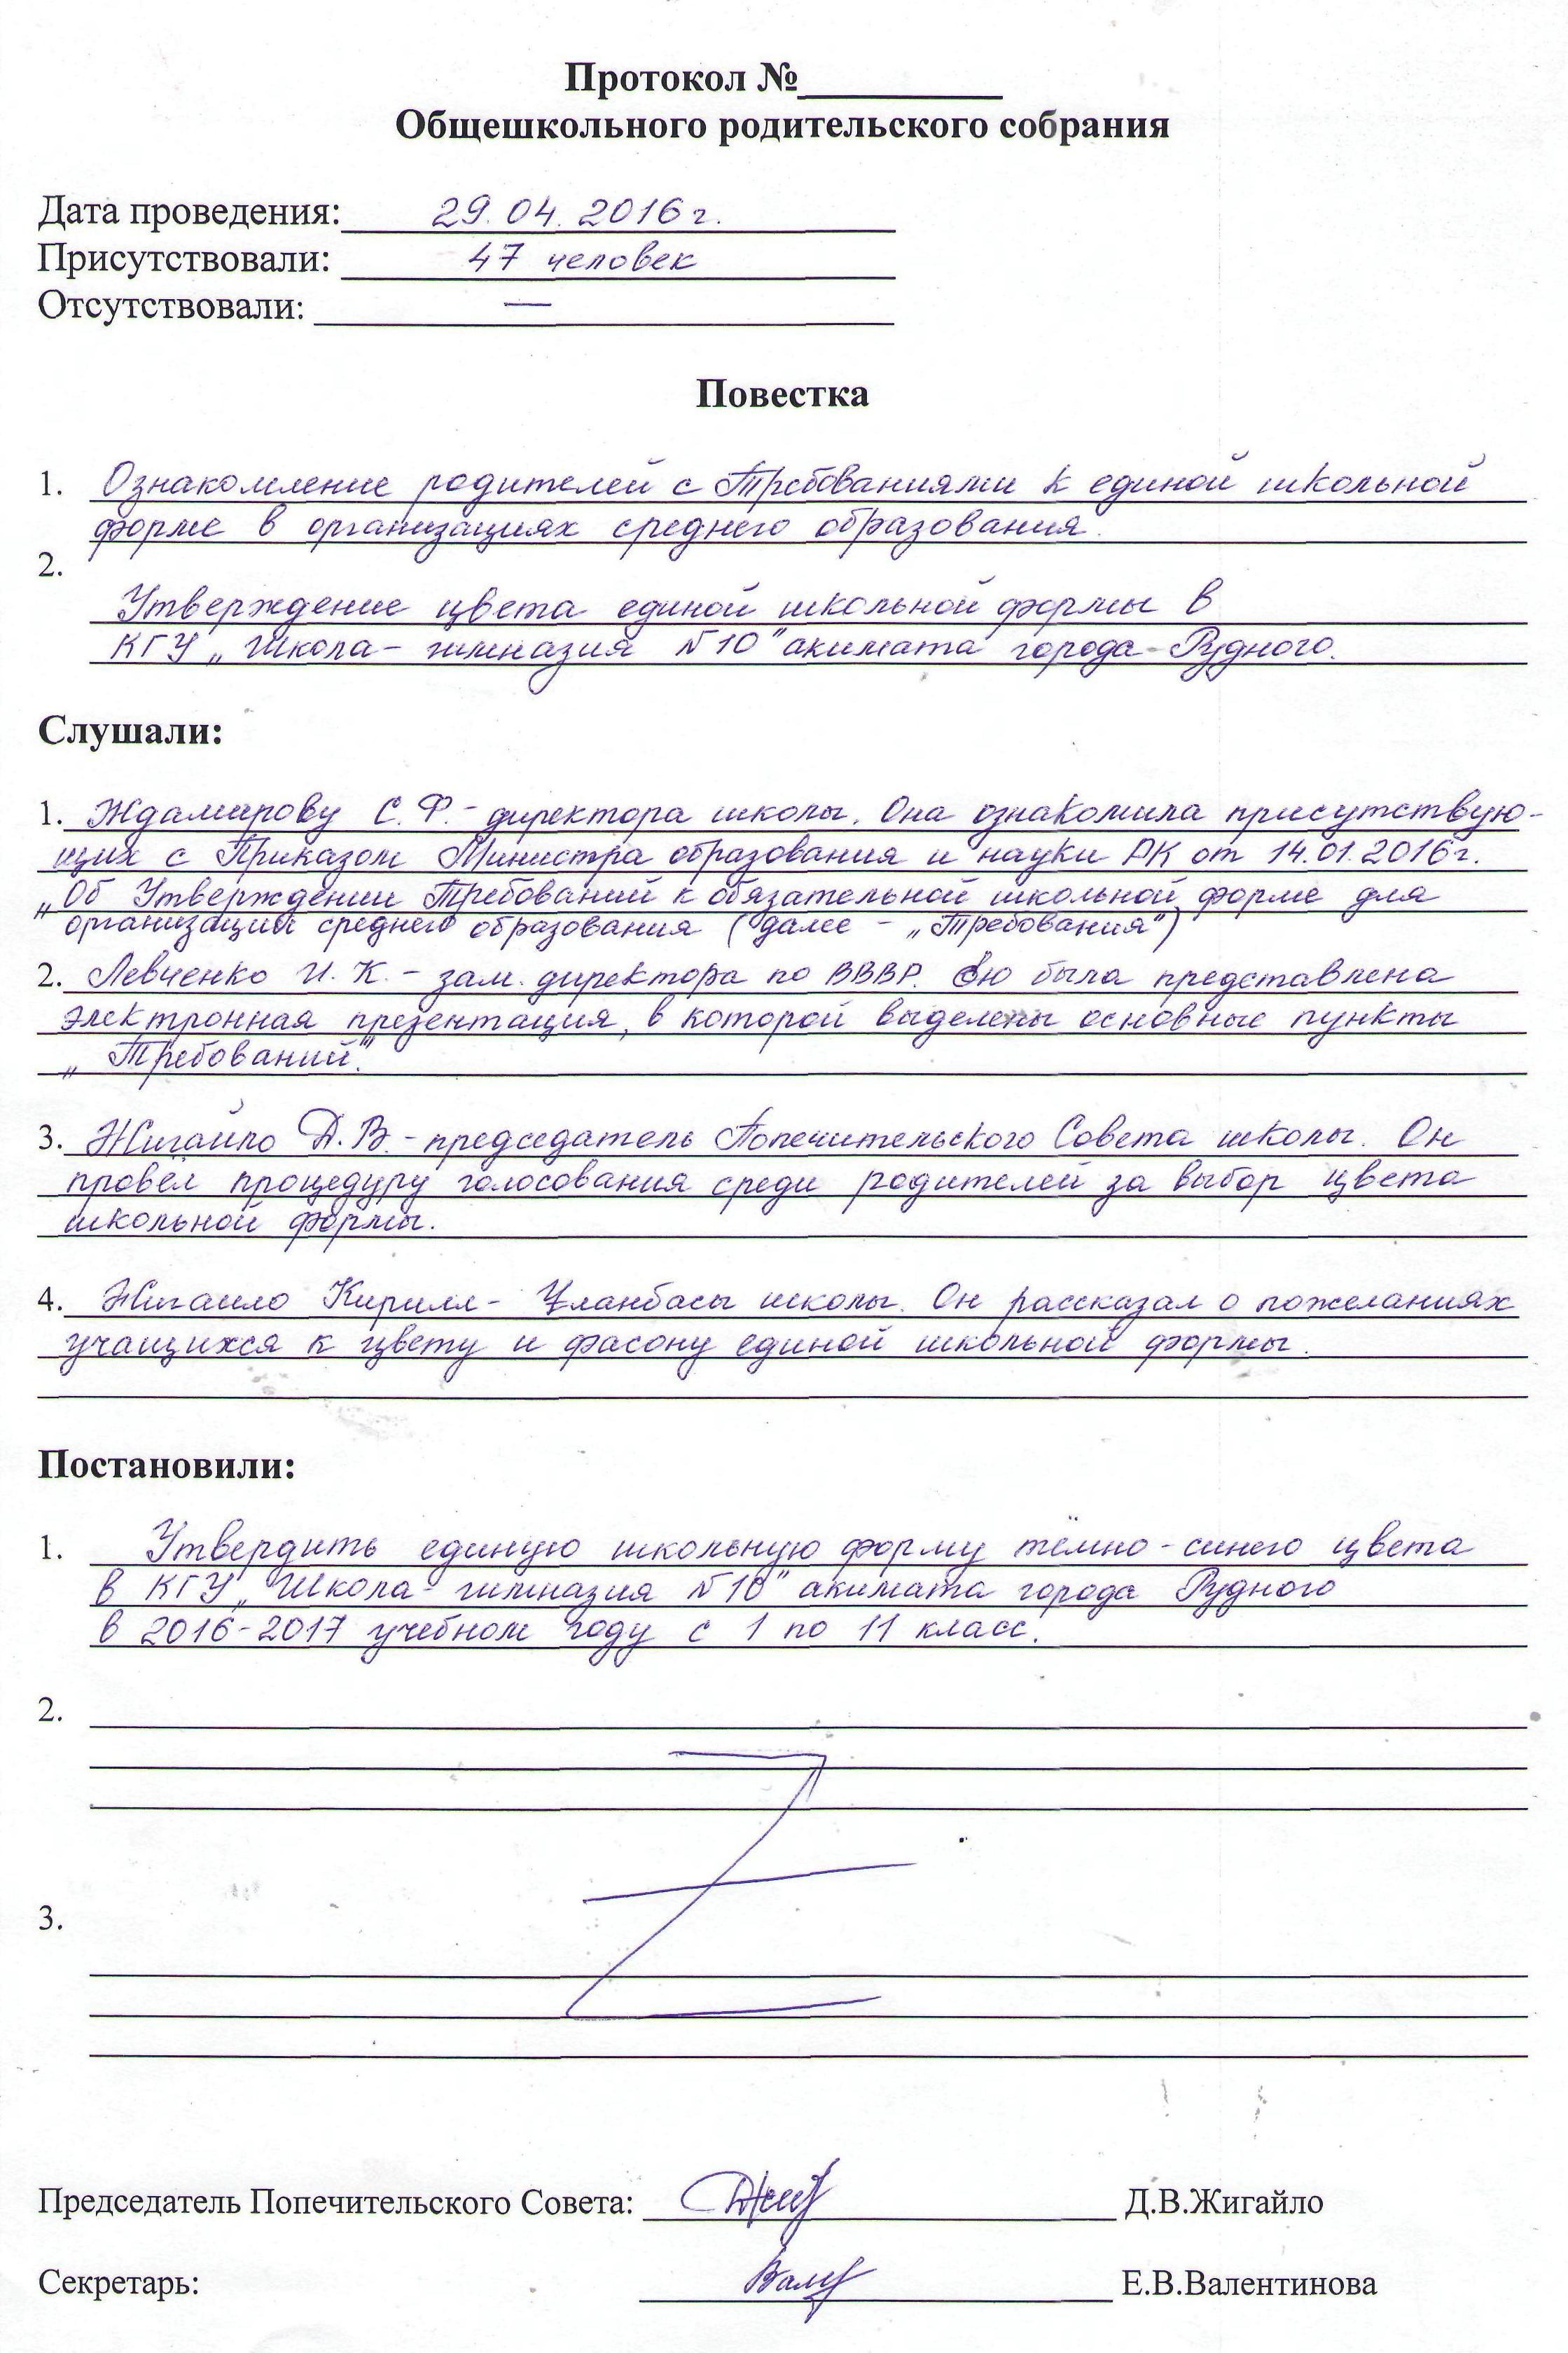 Протокол №__________
Общешкольного родительского собрания
Дата проведения: 29.04.2016г.
Присутствовали: 47 человек
Отсутствовали: —
Повестка
1. Ознакомление родителей с Требованиями к единой школьной
форме в организациях среднего образования.
2.
Утверждение цвета единой школьной формы в
КГУ „Школа-гимназия №10" акимата города Рудного.
Слушали:
1. Ждамирову С.Ф.- директора школы. Она ознакомила присутствую-
щих с Приказом Министра образования и науки РК от 14.01.2016г.
„Об Утверждении Требований к обязательной школьной форме для
организаций среднего образования (далее - „Требования")
2. Левченко И.К. - зам. директора по ВВВР. Ею была представлена
электронная презентация, в которой выделены основные пункты
„Требований".
3. Жигайло Д.В. - председатель Попечительского Совета школы. Он
провёл процедуру голосования среди родителей за выбор цвета
школьной формы.
4. Жигайло Кирилл - Ұланбасы школы. Он рассказал о пожеланиях
учащихся к цвету и фасону единой школьной формы.
Постановили:
1. Утвердить единую школьную форму тёмно-синего цвета
в КГУ „Школа-гимназия №10" акимата города Рудного
в 2016-2017 учебном году с 1 по 11 класс.
2.
3.
Председатель Попечительского Совета: Д.В.Жигайло
Секретарь: Е.В.Валентинова